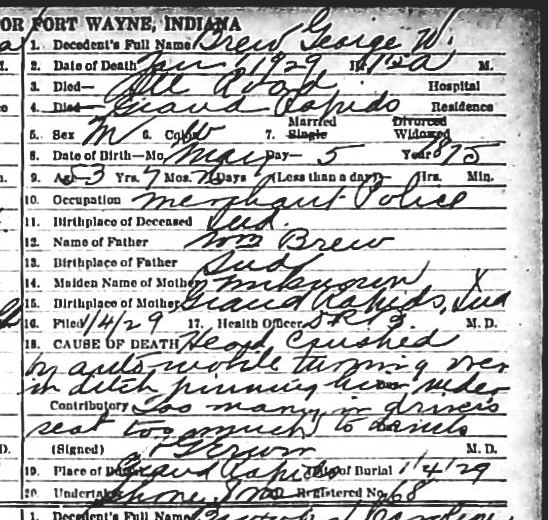 OR FORT WAYNE, INDIANA
1. Decedent's Full Name Brew George W.
2. Date of Death Jan 1 1929 M.
3. Died— Road Hospital
4. Died— Grand Rapids Residence
5. Sex M 6. Color W 7. Married Single Divorced Widowed
8. Date of Birth—Mo. May Day— 5 Year 1875
9. Age 53 Yrs. 7 Mos. Days (Less than a day)— Hrs. Min.
10. Occupation Merchant Police
11. Birthplace of Deceased Ind.
12. Name of Father Wm Brew
13. Birthplace of Father Ind
14. Maiden Name of Mother
15. Birthplace of Mother Grand Rapids, Ind
16. Filed 1/4/29 17. Health Officer M. D.
18. CAUSE OF DEATH Head Crushed
by automobile turning over
in ditch pinning him under
Contributory Too many in drivers
seat too much to drink
(Signed) M. D.
19. Place of Burial Grand Rapids Date of Burial 1/4/29
20. Undertaker Registered No. 68
1. Decedent's Full Name